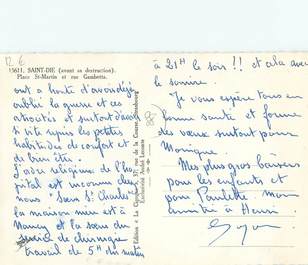 12 €
15611. SAINT-DIE (avant sa destruction).
Place St-Martin et rue Gambetta.
ont a honte d'avoir déjà
oublié la guerre et ces
atrocités et surtout d'avoir
si vite repris les petites
habitudes de confort et
de bien être.
L'ordre religieux de l'hô
pital est inconnu chez
nous "Sœurs St Charles"
la maison mère est à
Nancy et la sœur du
service de chirurgie
travail de 5H du matin
Edition « La Cigogne », 37, rue de la Course, Strasbourg
Exclusivité André Leconte
à 21H le soir !! et cela avec
le sourire.
Je vous espère tous en
bonne santé et forme
des vœux surtout pour
Monique.
Mes plus gros baisers
pour les enfants et
pour Paulette mon
amitié à Henri.